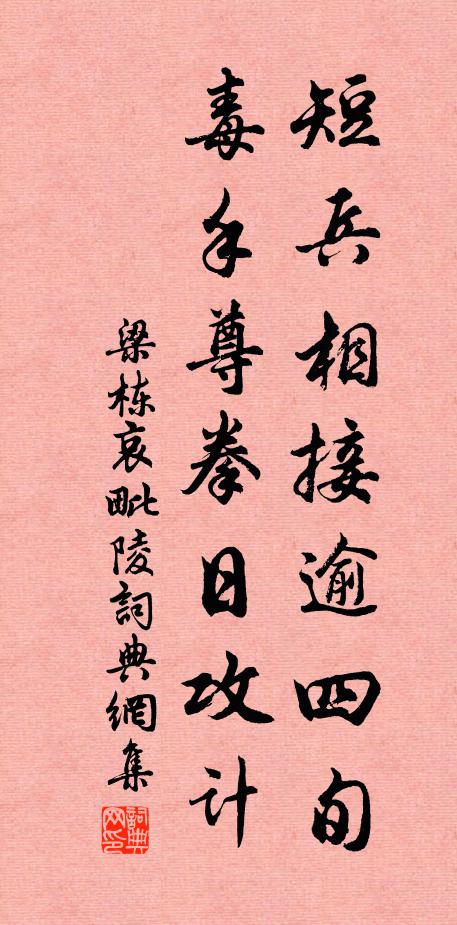 短兵相接逾四旬
毒手尊拳日攻计
梁栋哀毗陵詞典網集
詞典
网印